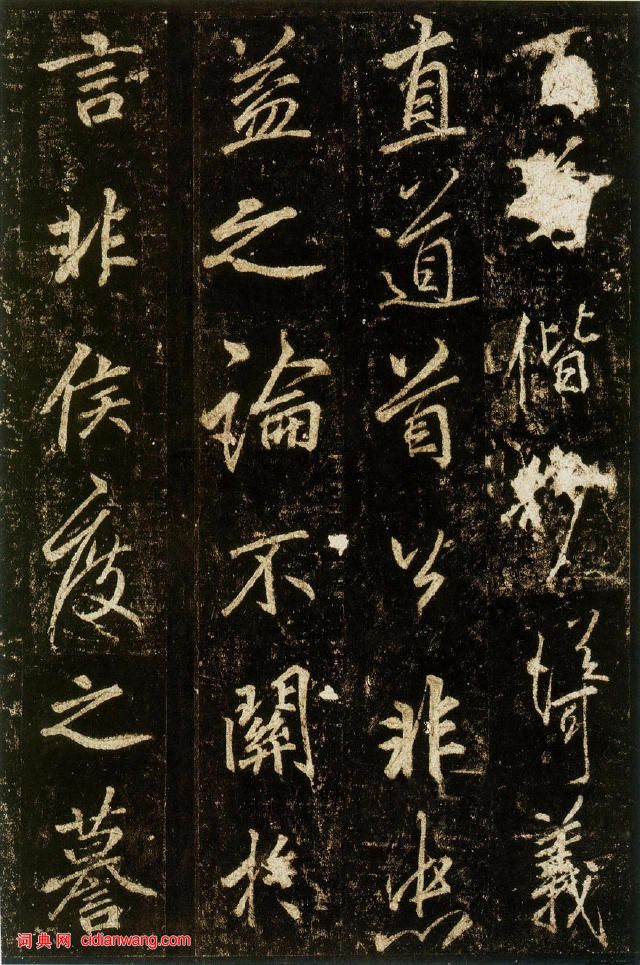 偕妙義
直道首公非忠
益之論不關扵
言非侯度之謩
词典网 cidianwang.com